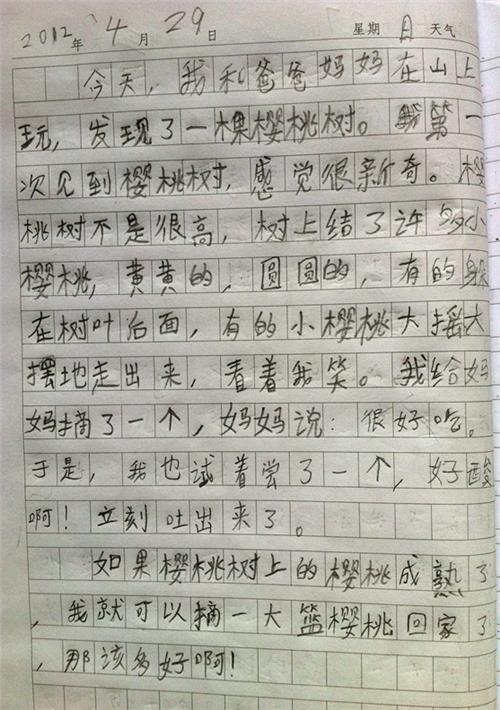 2012年4月29日 星期日 天气
今天，我和爸爸妈妈在山上
玩，发现了一棵樱桃树。我第一
次见到樱桃树，感觉很新奇。樱
桃树不是很高，树上结了许多小
樱桃，黄黄的，圆圆的，有的躲
在树叶后面，有的小樱桃大摇大
摆地走出来，看着我笑。我给妈
妈摘了一个，妈妈说：很好吃。
于是，我也试着尝了一个，好酸
啊！立刻吐出来了。
如果樱桃树上的樱桃成熟了
，我就可以摘一大篮樱桃回家了
，那该多好啊！